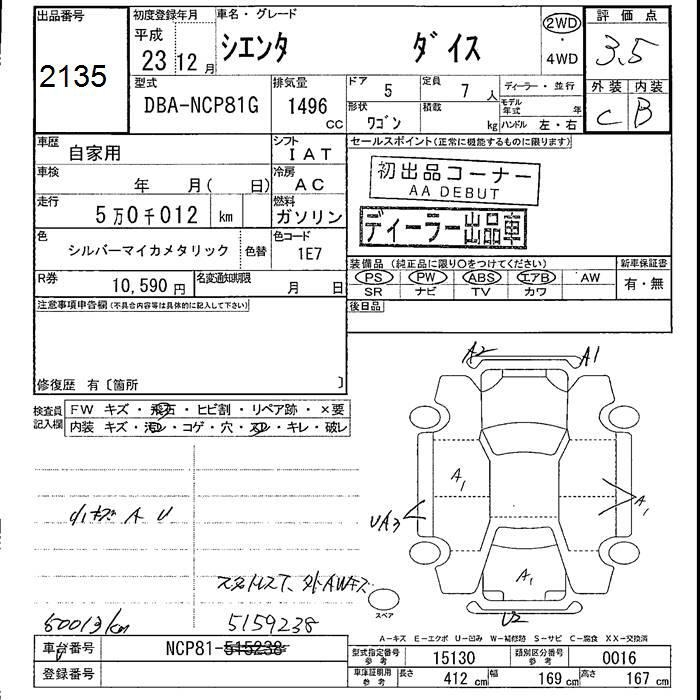 出品番号
2135
初度登録年月
平成
23 12月
車名・グレード
シエンタ ダイス
2WD
・
4WD
評価点
3.5
外装 内装
C B
型式
DBA-NCP81G
排気量
1496
CC
ドア 5
定員 7 人
ディーラー・並行
形状
ワゴン
積載
kg
モデル
年式 年
ハンドル 左・右
車歴
自家用
シフト
IAT
車検
年 月( 日)
冷房
AC
走行
5万0千012 km
燃料
ガソリン
色
シルバーマイカメタリック
色替
色コード
1E7
R券
10,590 円
名変通知期限
月 日
セールスポイント(正常に機能するものに限ります)
初出品コーナー
AA DEBUT
ディーラー出品車
装備品(純正品に限り○をつけてください)
PS PW ABS エアB AW
SR ナビ TV カワ
新車保証書
有・無
後日品
注意事項申告欄(不具合内容等は具体的に記入して下さい)
修復歴 有〔箇所 〕
検査員
記入欄
FW キズ・飛石・ヒビ割・リペア跡・×要
内装 キズ・汚レ・コゲ・穴・スレ・キレ・破レ
A2 A1
A1
UA3
A1
A1
U2
スペア
小キズ A U
スタットレスT、外AWキズ
50013km
5159238
車台番号
NCP81-515238
登録番号
A-キズ E-エクボ U-凹み W-補修跡 S-サビ C-腐食 XX-交換済
型式指定番号
参考
15130
類別区分番号
参考
0016
車庫証明用
参考
長さ
412 cm
幅
169 cm
高さ
167 cm